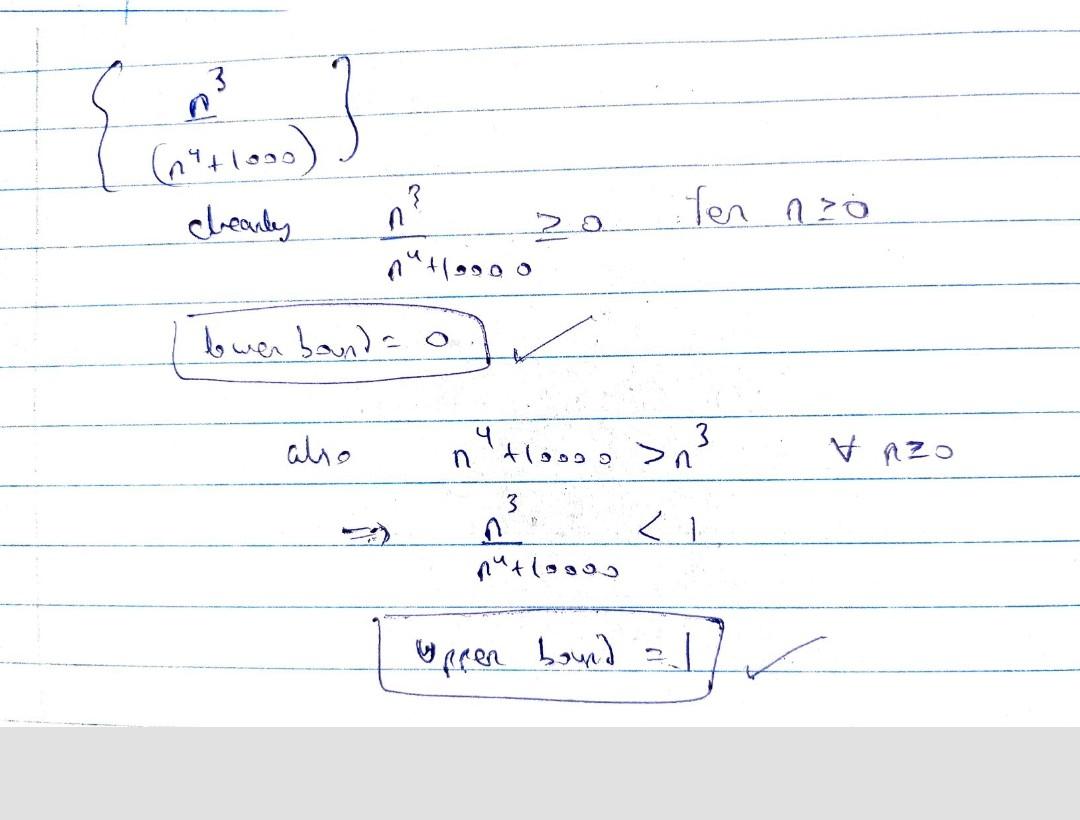 { n³ / (n⁴+1000) }
clearly n³ / n⁴+10000 ≥ 0 for n≥0
lower bound = 0 ✓
also n⁴+10000 > n³ ∀ n≥0
⇒ n³ / n⁴+10000 < 1
Upper bound = 1 ✓